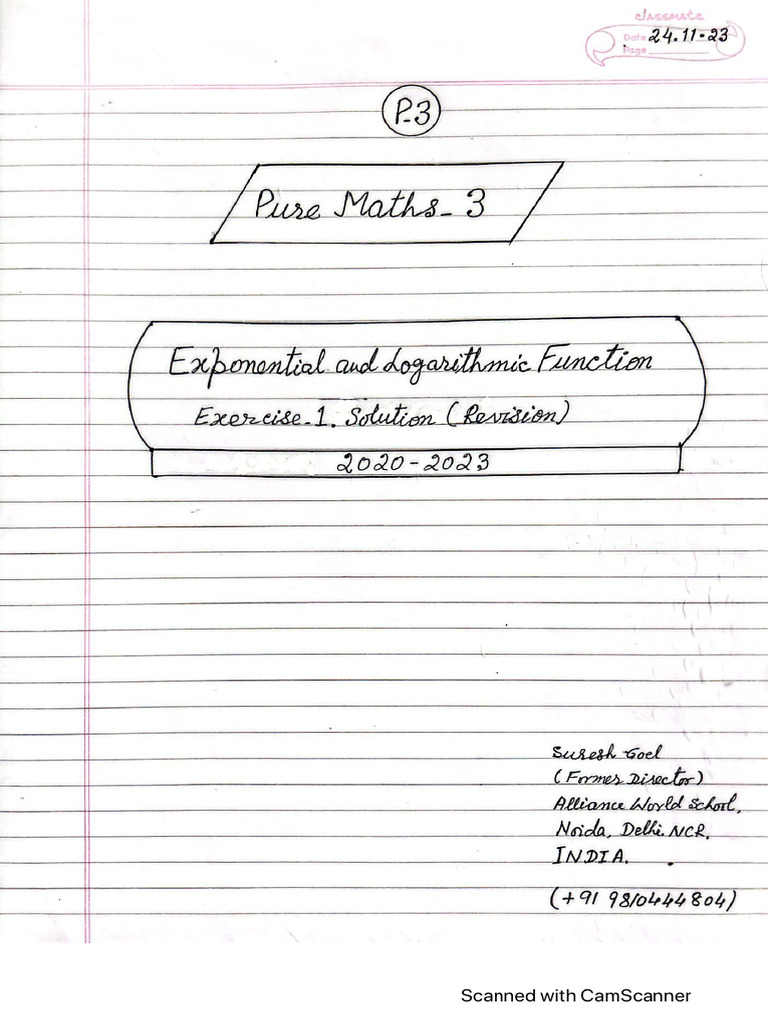 classmate
Date 24.11.23
Page
P-3
Pure Maths-3
Exponential and Logarithmic Function
Exercise-1. Solution (Revision)
2020-2023
Suresh Goel
(Former Director)
Alliance World School,
Noida, Delhi NCR,
INDIA.
(+91 9810444804)
Scanned with CamScanner